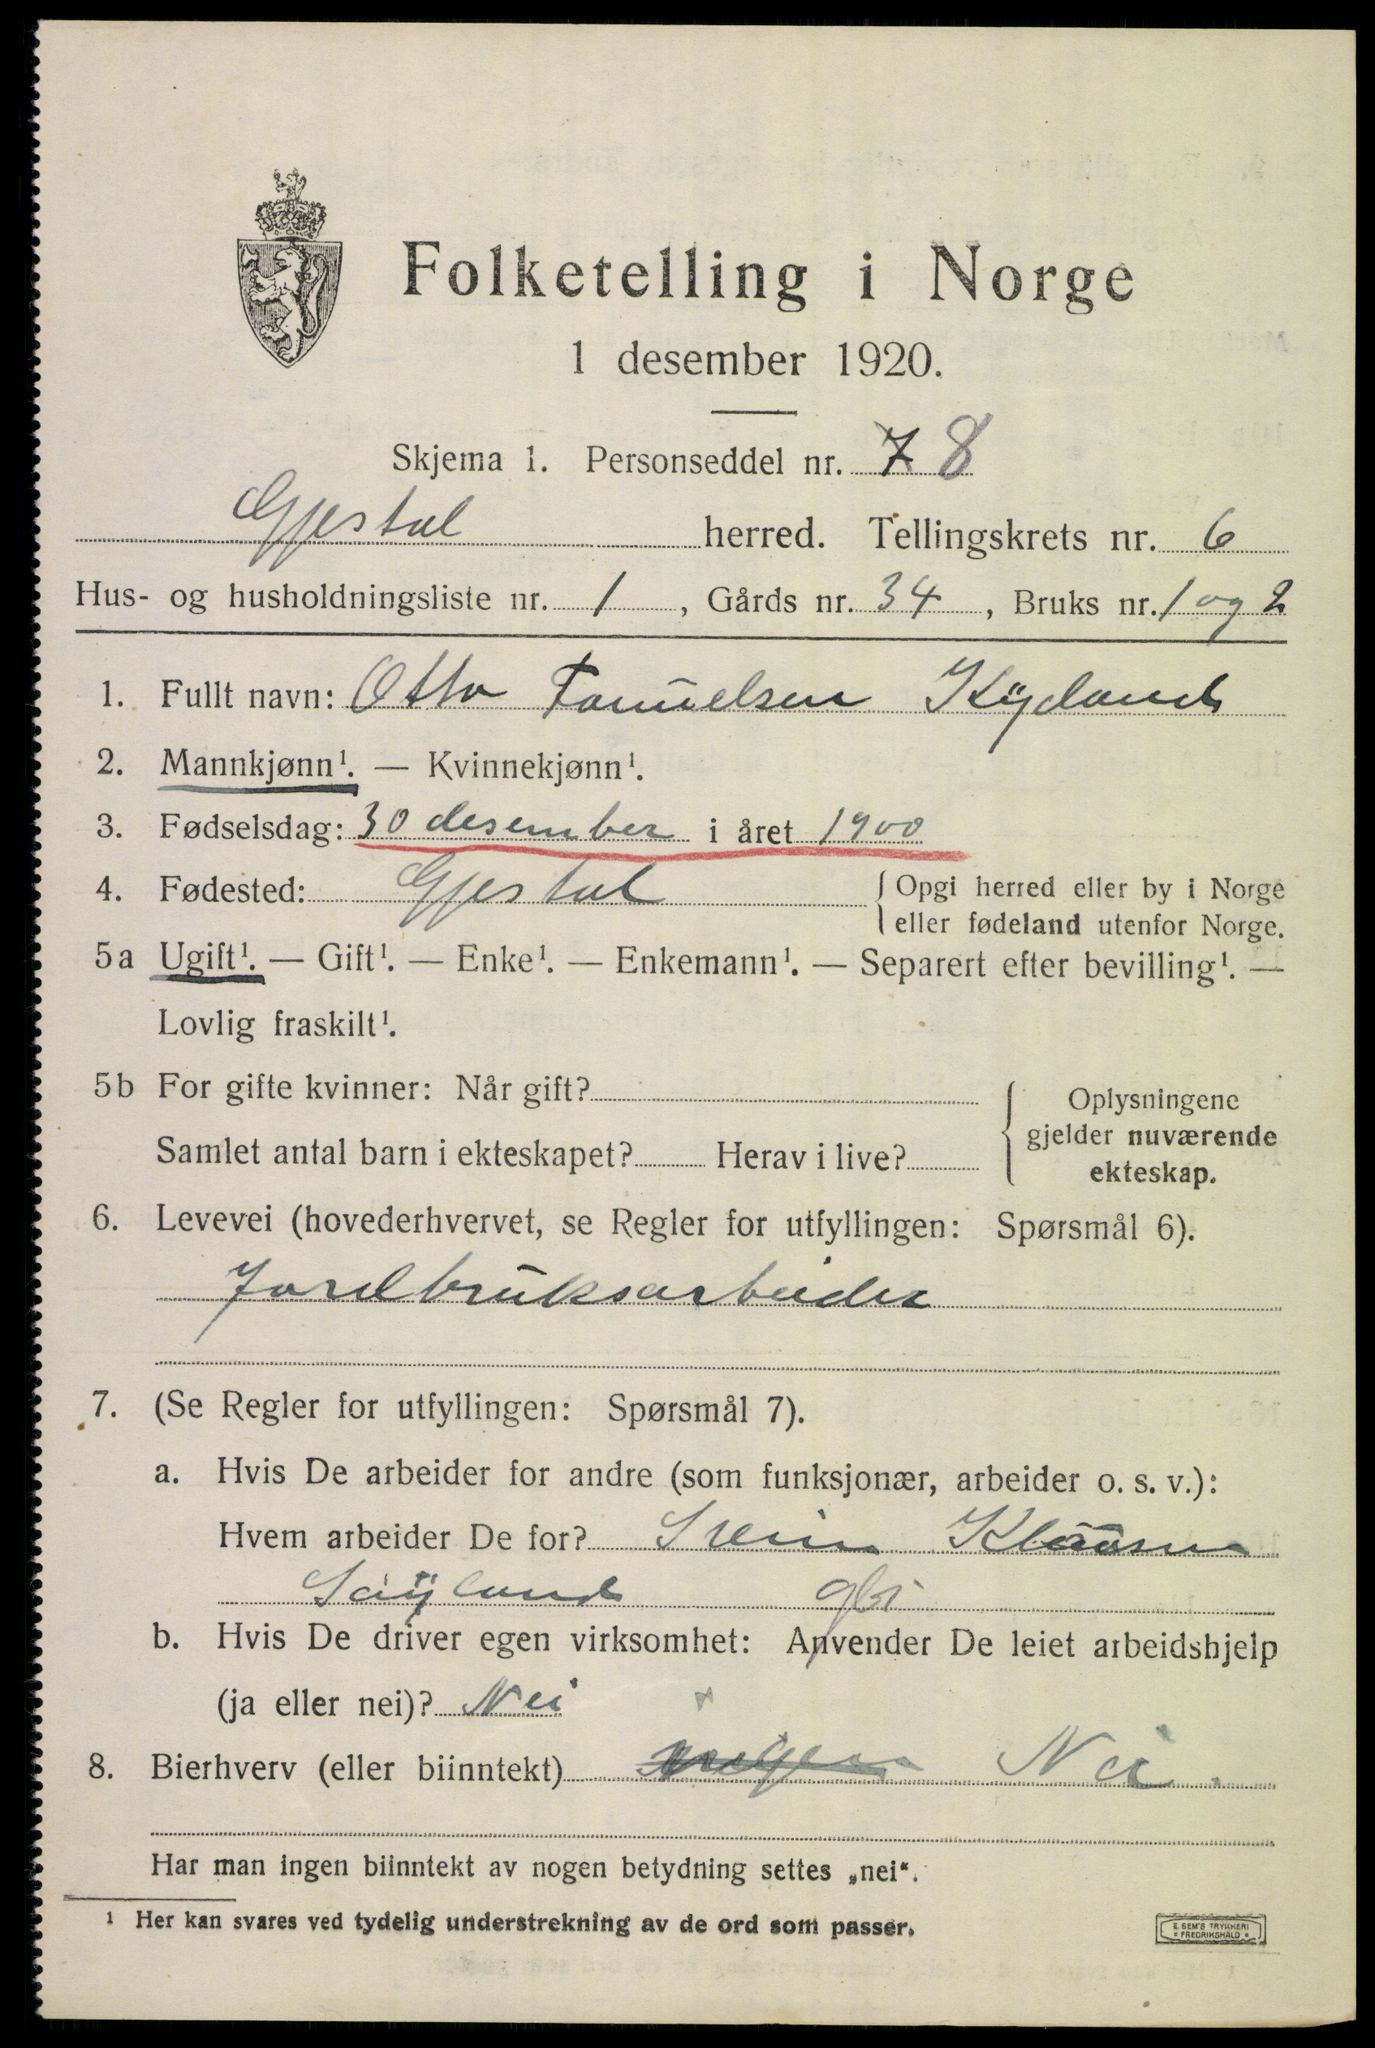 Folketelling i Norge
1 desember 1920.
Skjema 1. Personseddel nr. 7 8
Gjestal herred. Tellingskrets nr. 6
Hus- og husholdningsliste nr. 1, Gårds nr. 34, Bruks nr. 1 og 2
1. Fullt navn: Otto Kydland
2. Mannkjønn¹. — Kvinnekjønn¹.
3. Fødselsdag: 30 desember i året 1900
4. Fødested: Gjestal { Opgi herred eller by i Norge
eller fødeland utenfor Norge.
5a Ugift¹. — Gift¹. — Enke¹. — Enkemann¹. — Separert efter bevilling¹. —
Lovlig fraskilt¹.
5b For gifte kvinner: Når gift?
Samlet antal barn i ekteskapet? Herav i live?
{ Oplysningene
gjelder nuværende
ekteskap.
6. Levevei (hovederhvervet, se Regler for utfyllingen: Spørsmål 6).
Jordbruksarbeider
7. (Se Regler for utfyllingen: Spørsmål 7).
a. Hvis De arbeider for andre (som funksjonær, arbeider o. s. v.):
Hvem arbeider De for? Svein
gbr
b. Hvis De driver egen virksomhet: Anvender De leiet arbeidshjelp
(ja eller nei)? Nei
8. Bierhverv (eller biinntekt) Nei.
Har man ingen biinntekt av nogen betydning settes „nei“.
¹ Her kan svares ved tydelig understrekning av de ord som passer.
E. SEM'S TRYKKERI
FREDRIKSHALD